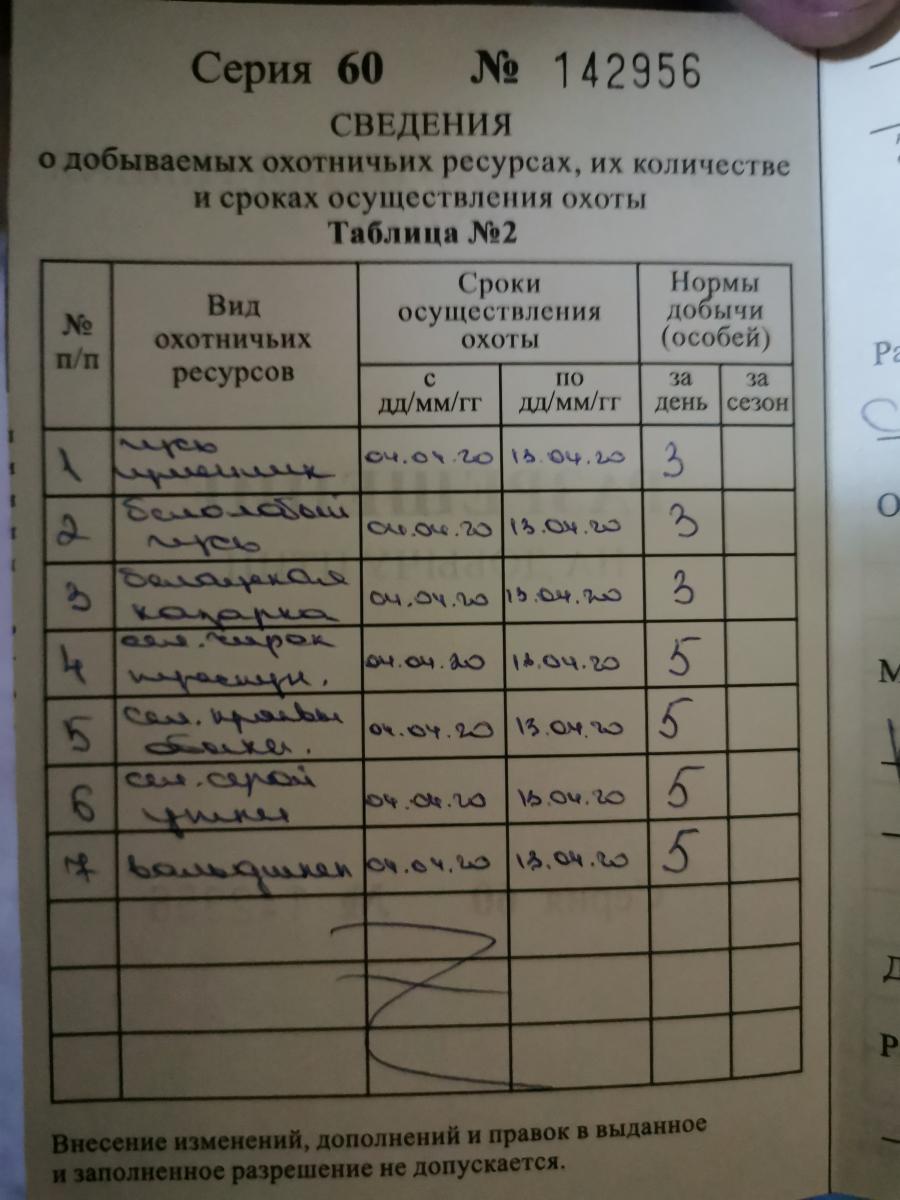 Серия 60 № 142956
СВЕДЕНИЯ
о добываемых охотничьих ресурсах, их количестве
и сроках осуществления охоты
Таблица №2
№ п/п Вид охотничьих ресурсов Сроки осуществления охоты Нормы добычи (особей)
с дд/мм/гг по дд/мм/гг за день за сезон
1 гусь гуменник 04.04.20 13.04.20 3
2 белолобый гусь 04.04.20 13.04.20 3
3 белощекая казарка 04.04.20 13.04.20 3
4 сел. чирок 04.04.20 13.04.20 5
5 сел. 04.04.20 13.04.20 5
6 сел. серой утки 04.04.20 13.04.20 5
7 вальдшнеп 04.04.20 13.04.20 5
Внесение изменений, дополнений и правок в выданное
и заполненное разрешение не допускается.